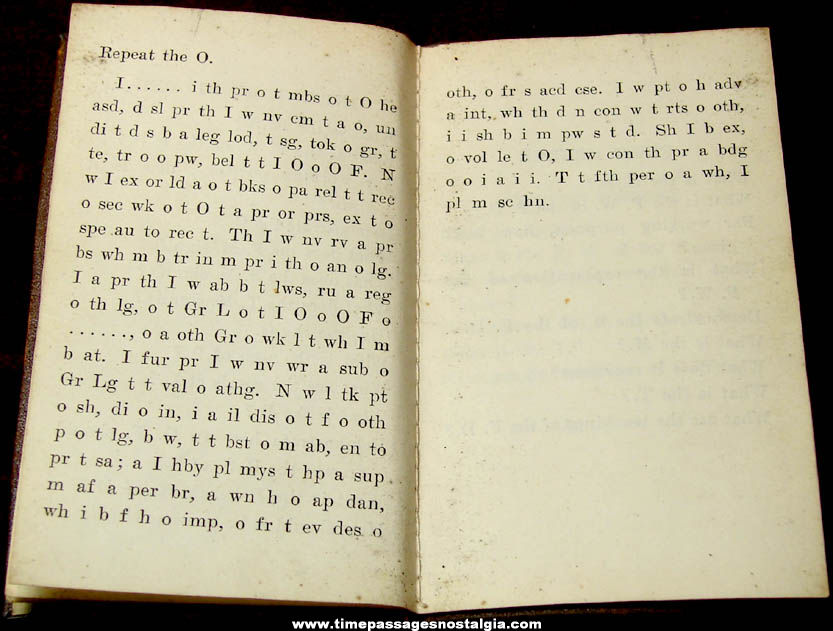 Repeat the O.
I...... i th pr o t mbs o t O he
asd, d sl pr th I w nv cm t a o, un
di t d s b a leg lod, t sg, tok o gr, t
te, tr o o pw, bel t t I O o O F. N
w I ex or ld a o t bks o pa rel t t rec
o sec wk o t O t a pr or prs, ex t o
spe au to rec t. Th I w nv rv a pr
bs wh m b tr in m pr i th o an o lg.
I a pr th I w ab b t lws, ru a reg
o oth lg, o t Gr L o t I O o O F o
......, o a oth Gr o wk l t wh I m
b at. I fur pr I w nv wr a sub o
Gr Lg t t val o athg. N w l tk pt
o sh, di o in, i a il dis o t f o oth
p o t lg, b w, t t bst o m ab, en to
pr t sa; a I hby pl mys t hp a sup
m af a per br, a wn h o ap dan,
wh i b f h o imp, o fr t ev des o
oth, o fr s acd cse. I w pt o h adv
a int, wh th d n con w t rts o oth,
i i sh b i m pw s t d. Sh I b ex,
o vol le t O, I w con th pr a bdg
o o i a i i. T t fth per o a wh, I
pl m sc hn.
www.timepassagesnostalgia.com